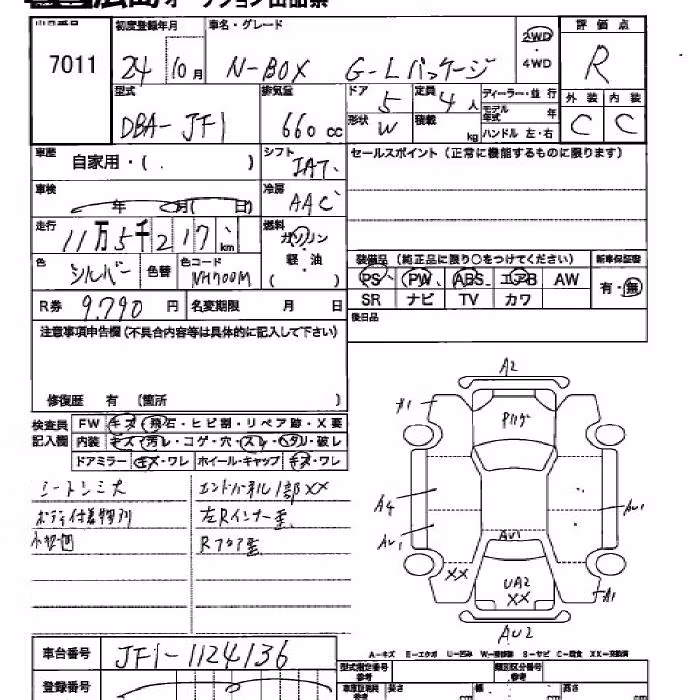 広島 オークション出品票
7011
初度登録年月
24 10月
車名・グレード
N-BOX G-Lパッケージ
2WD
4WD
評価点
R
型式
DBA-JF1
排気量
660 cc
ドア
5
定員
4人
形状
W
積載
kg
ディーラー・並行
モデル年式 年
ハンドル 左・右
外装 内装
C C
車歴
自家用・( )
シフト
IAT
セールスポイント (正常に機能するものに限ります)
車検
年 月( 日)
冷房
AAC
走行
11万5千217 km
燃料
ガソリン
軽・油
( )
色
シルバー
色替
色コード
NH700M
装備品 (純正品に限り○をつけてください)
新車保証書
PS PW ABS エアB AW
SR ナビ TV カワ
有・無
R券 9.790 円
名変期限 月 日
後日品
注意事項申告欄 (不具合内容等は具体的に記入して下さい)
修復歴 有 (箇所 )
検査員記入欄
FW キズ・飛石・ヒビ割・リペア跡・X要
内装 キズ・汚レ・コゲ・穴・スレ・ヘタリ・破レ
ドアミラー キズ・ワレ ホイール・キャップ キズ・ワレ
シートシミ大
エンドパネル1部XX
左Rインナー歪
Rフロア歪
A2
A1
A4
AU1
AU1
AU1
XX
UA2
XX
A1
AU2
A-キズ E-エクボ U-凹み W-補修跡 S-サビ C-腐食 XX-交換済
車台番号 JF1-1124136
登録番号
型式指定番号
参考
類別区分番号
参考
長さ cm 幅 cm 高さ cm